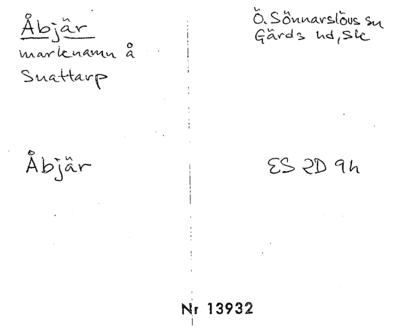 Åbjär
marknamn å
Snattarp
Ö. Sönnarslövs sn
Gärds hd, Sk
Åbjär
ES 2D 9h
Nr 13932